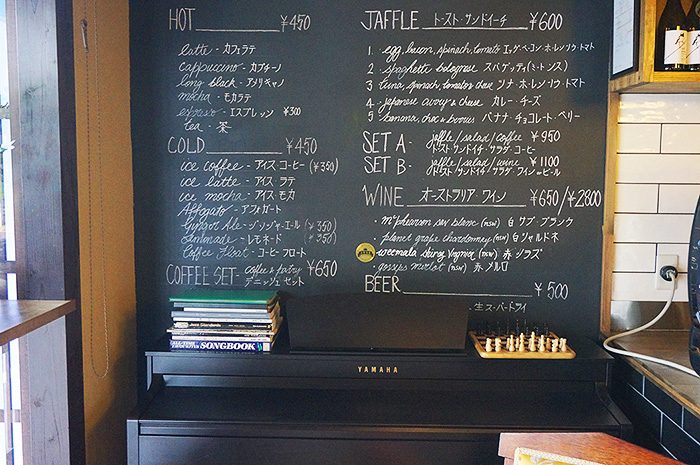 HOT ¥450
latte - カフェラテ
cappuccino - カプチーノ
long black - アメリキャノ
mocha - モカラテ
espresso - エスプレッソ ¥300
tea - 茶
COLD ¥450
ice coffee - アイス・コーヒー (¥350)
ice latte - アイス・ラテ
ice mocha - アイス・モカ
Affogato - アフォガート
Ginger Ale - ジンジャ・エール (¥350)
Lemonade - レモネード ¥350)
Coffee Float - コーヒーフロート
COFFEE SET - ¥650
デニッシュセット
JAFFLE トースト・サンドイーチ ¥600
1. egg, bacon, spinach, tomato エッグ・ベーコン・ホ・レンソウ・トマト
2. spaghetti bolognese スパゲッティ(ミートソンス)
3 tuna, spinach, tomatoes cheese ツナ・ホ・レンソウ・トマト
4 japanese curry & cheese カレー・チーズ
5 banana, choc & berries バナナ・チョコレート・ベリー
SET A - jaffle/salad/coffee ¥950
トーストサンドイチ/サラダ・コーヒー
SET B - jaffle/salad/wine ¥1100
トーストサンドイチ/サラダ・ワイン
WINE オーストラリア・ワイン ¥650/¥2800
• mcpherson sav blanc (nsw) 白 サブ・ブランク
• planet grape chardonnay (nsw) 白 シャルドネ
weemala shiraz viognier (nsw) 赤 シラズ
• gossips merlot (nsw) 赤 メルロ
BEER ¥500
生スーパードライ
Jazz Standards
SONGBOOK
YAMAHA